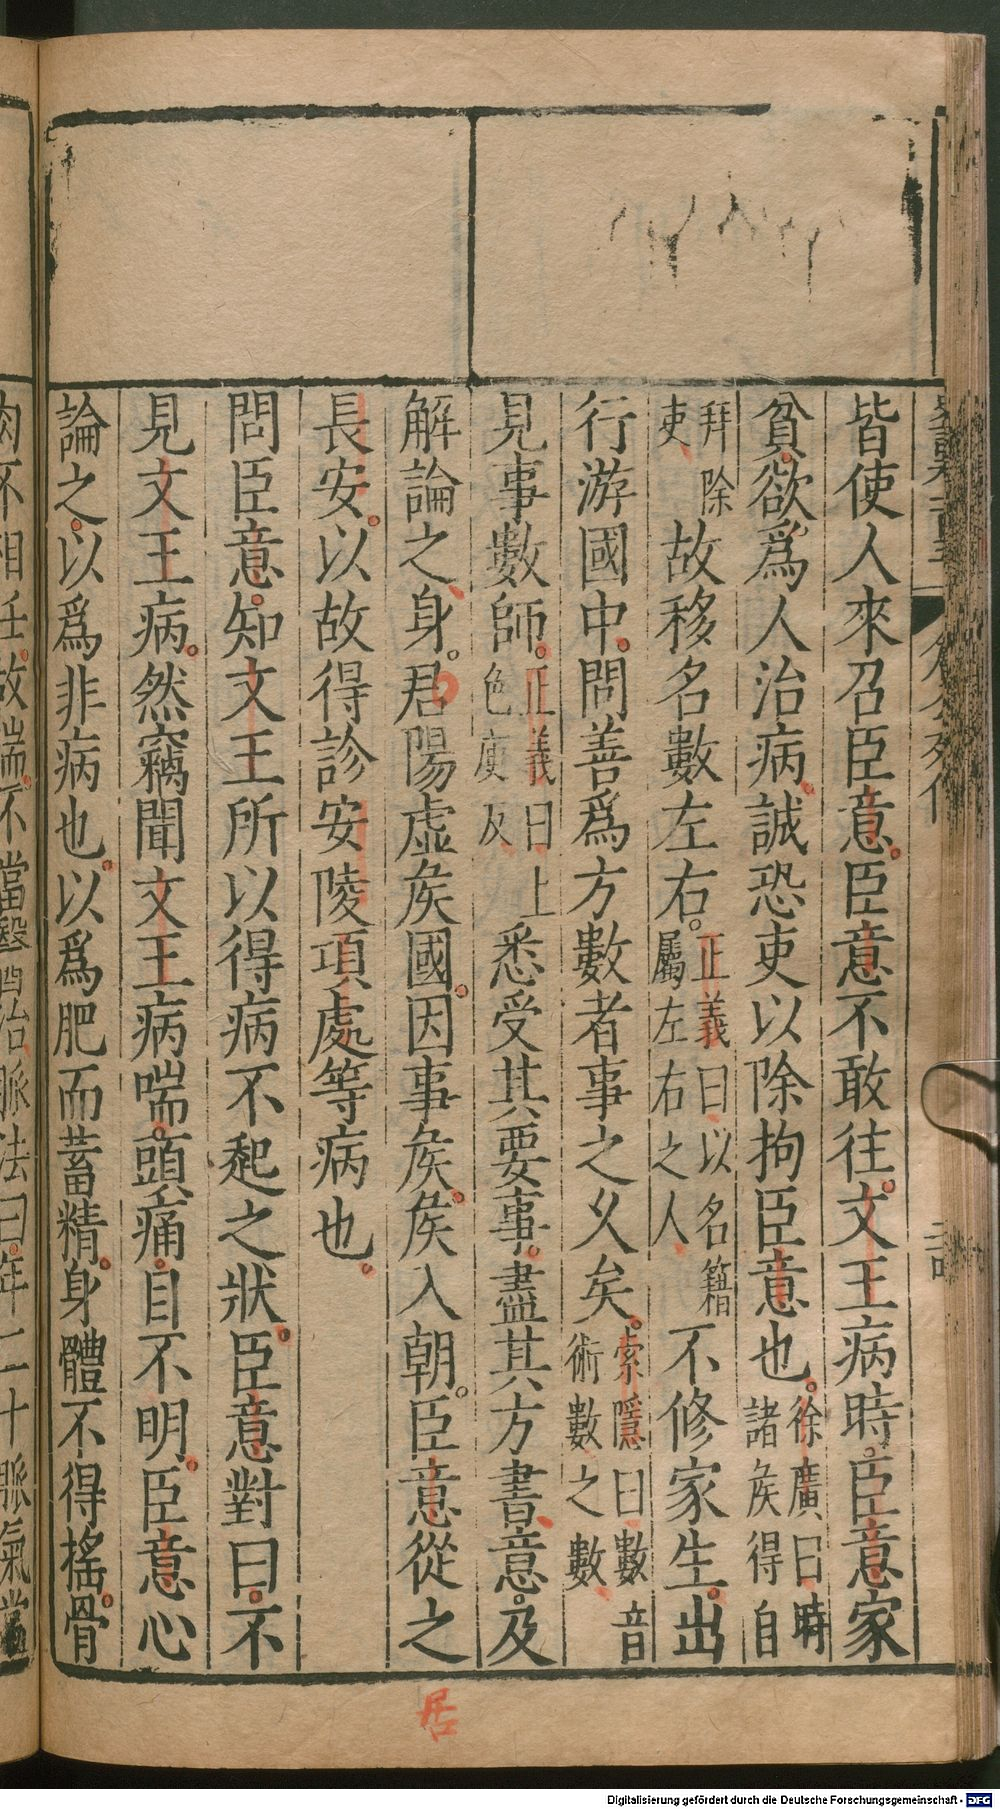 皆使人來召臣意。臣意不敢往。文王病時。臣意家
貧。欲爲人治病。誠恐吏以除拘臣意也。徐廣曰時諸矦得自
拜除吏故移名數左右。正義曰以名籍屬左右之人不修家生。出
行游國中。問善爲方數者事之乆矣。索隱曰數音術數之數
見事數師。正義曰上色庾反悉受其要事。盡其方書意。及
解論之。身。居陽虛矦國。因事矦。矦入朝。臣意從之
長安。以故得診安陵項處等病也。
問臣意。知文王所以得病不起之狀。臣意對曰。不
見文王病。然竊聞文王病喘。頭痛。目不明。臣意心
論之。以爲非病也。以爲肥而蓄精。身體不得搖。骨
肉不相任。故喘。不當醫治。脈法曰。年二十脈氣當
居
Digitalisierung gefördert durch die Deutsche Forschungsgemeinschaft - DFG